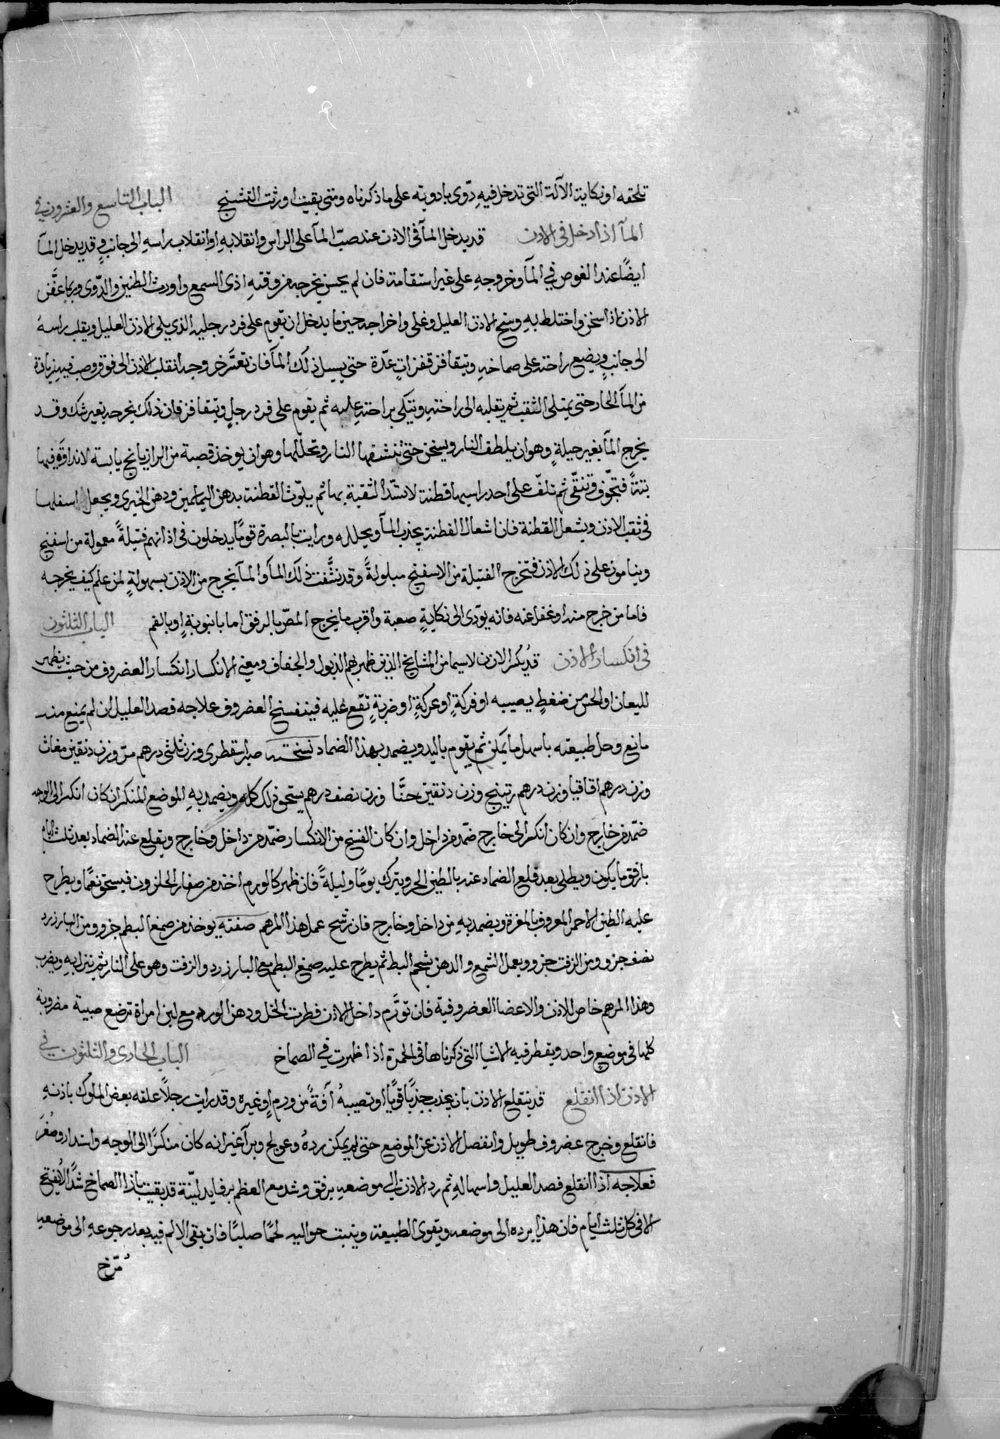 تلحقه او نكاية الآلة التى تدخل فيه دووى بادويته على ما ذكرناه ومتى بقيت اورثت التشنج الباب التاسع والعشرون في
المآ اذا دخل فى الاذن قد يدخل المآ فى الاذن عند صب المآ على الراس وانقلابه او انقلاب راسه الى جانب وقد يدخل المآ
ايضًا عند الغوص في المآ وخروجه على غير استقامة فان لم يحسن يخرجه من وقته اذى السمع واورث الطنين والدوى وربما عفن
الاذن اذا سخن واختلط به وسخ الاذن العليل وغلى واخراجه حين ما يدخل ان يقوم على فرد رجليه الذي يلى الاذن العليل ويقلب راسه
الى جانب ويضع راحته على صماخه ويتقافز قفزات عدّة حتى يسيل ذلك المآ فان تعسّر خروجه انقلب الاذن الى فوق وصب فيه زيادة
من المآ الحار حتى يمتلى الثقب ثم يقلبه الى راحته ويتكى براحته عليه ثم يقوم على فرد رجل ويتقافز فان ذلك يخرجه بغير شك وقد
يخرج المآ بغير حيلةٍ وهو ان يلطف النار ويسخن حتى تنشفها النار وتحللها وهو ان يوخذ قصبة من الرازيانج يابسة لا نداوة فيها
بتةً فتجوف وتنقى ثم تلف على احد راسيها قطنة لا تسد الثقبة بها ثم يلوث القطنة بدهن الياسمين ودهن الخيرى ويجعل اسفلها
فى ثقب الاذن ويشعل القطنة فان اشعال القطنة يجذب المآ ويحلله ورايت بالبصرة قومًا يدخلون فى اذانهم فتيلةً معمولة من اسفنج
وينامون على ذلك الاذن فتخرج الفتيلة من الاسفنج مبلولةً وقد نشّفت ذلك المآ والمآ يخرج من الاذن بسهولةٍ لمن علم كيف يخرجه
فاما من خرج منه او غفل عنه فانه يودى الى نكايةٍ صعبة واقرب ما يخرج المص بالرفق اما بانبوبةٍ او بالفم الباب الثلثون
فى انكسار الاذن قد يكسر الاذن لاسيما من المشايخ الذين ظهر بهم الذبول والجفاف ومعنى الانكسار انكسار الغضروف من حيث يظهر
للعيان او الحس من ضغطٍ يصيبه او فركةٍ او عركةٍ او ضربةٍ تقع عليه فينفسخ الغضروف علاجه فصد العليل ان لم يمنع منه
مانع وحل طبيعته باسهل ما يمكن ثم يقوم باليد ويضمد بهذا الضماد نسخته صبر اسقطرى وزن ثلثى درهم مرّ وزن دنقين مغاث
وزن درهم اقاقيا وزن درهم رتينج وزن دنقين حنّا وزن نصف درهم يسحق ذلك كله ويضمد به الموضع المنكسر ان كان انكسر الى الوجه
ضمّد من خارج وان كان انكسر الى خارج ضمّد من داخل وان كان الفسخ من الانكسار ضمّد من داخل وخارج ويقلع عنه الضماد بعد ثلث ايام
بارفق ما يكون ويطلى بعد قلع الضماد عنه بالطين الحر ويترك يومًا وليلةً فان ظهر كالورم اخذ من صغار الحلزون فيسحق نعمًا ويطرح
عليه الطين الاحمر المعروف بالمغرة ويضمد به من داخل وخارج فان رشح عمل هذا المرهم صفته يوخذ من صمغ البطم جزو ومن البارزد
نصف جزو ومن الزفت جزو ويعمل الشمع والدهن بشحم البط ثم يطرح عليه صمغ البطم مع البارزد والزفت وهو على النار ثم ينزل به ويضرب
وهذا المرهم خاص للاذن والاعضا الغضروفية فان تورّم داخل الاذن قطرت الخل ودهن الورد مع لبن امراة ترضع صبية مضروبة
كلها فى موضع واحد ويقطر فيه الاشيا التى ذكرناها فى الحمرة اذا ظهرت في الصماخ الباب الحادى والثلثون في
الاذن اذا انقلع قد ينقلع الاذن بان يجذب جذبًا قويًا او تصيبه آفةٌ من ورم او غيره وقد رايت رجلًا علقه بعض الملوك باذنه
فانقلع وخرج غضروف طويل وانفصل الاذن عن الموضع حتى لم يمكن رده وعولج وبرا غير انه كان منكسرًا الى الوجه واستدار وصغر
فعلاجه اذا انقلع فصد العليل واسهاله ثم رد الاذن الى موضعه برفق وشد مع العظم برفايد لينة قد بقيت باذا الصماخ شدًّا لا يفتح
الا فى كل ثلث ايام فان هذا يرده الى موضعه ويقوى الطبيعة وينبت حواليه لحمًا صلبًا فان بقى الالم فيه بعد رجوعه الى موضعه
مرّخ